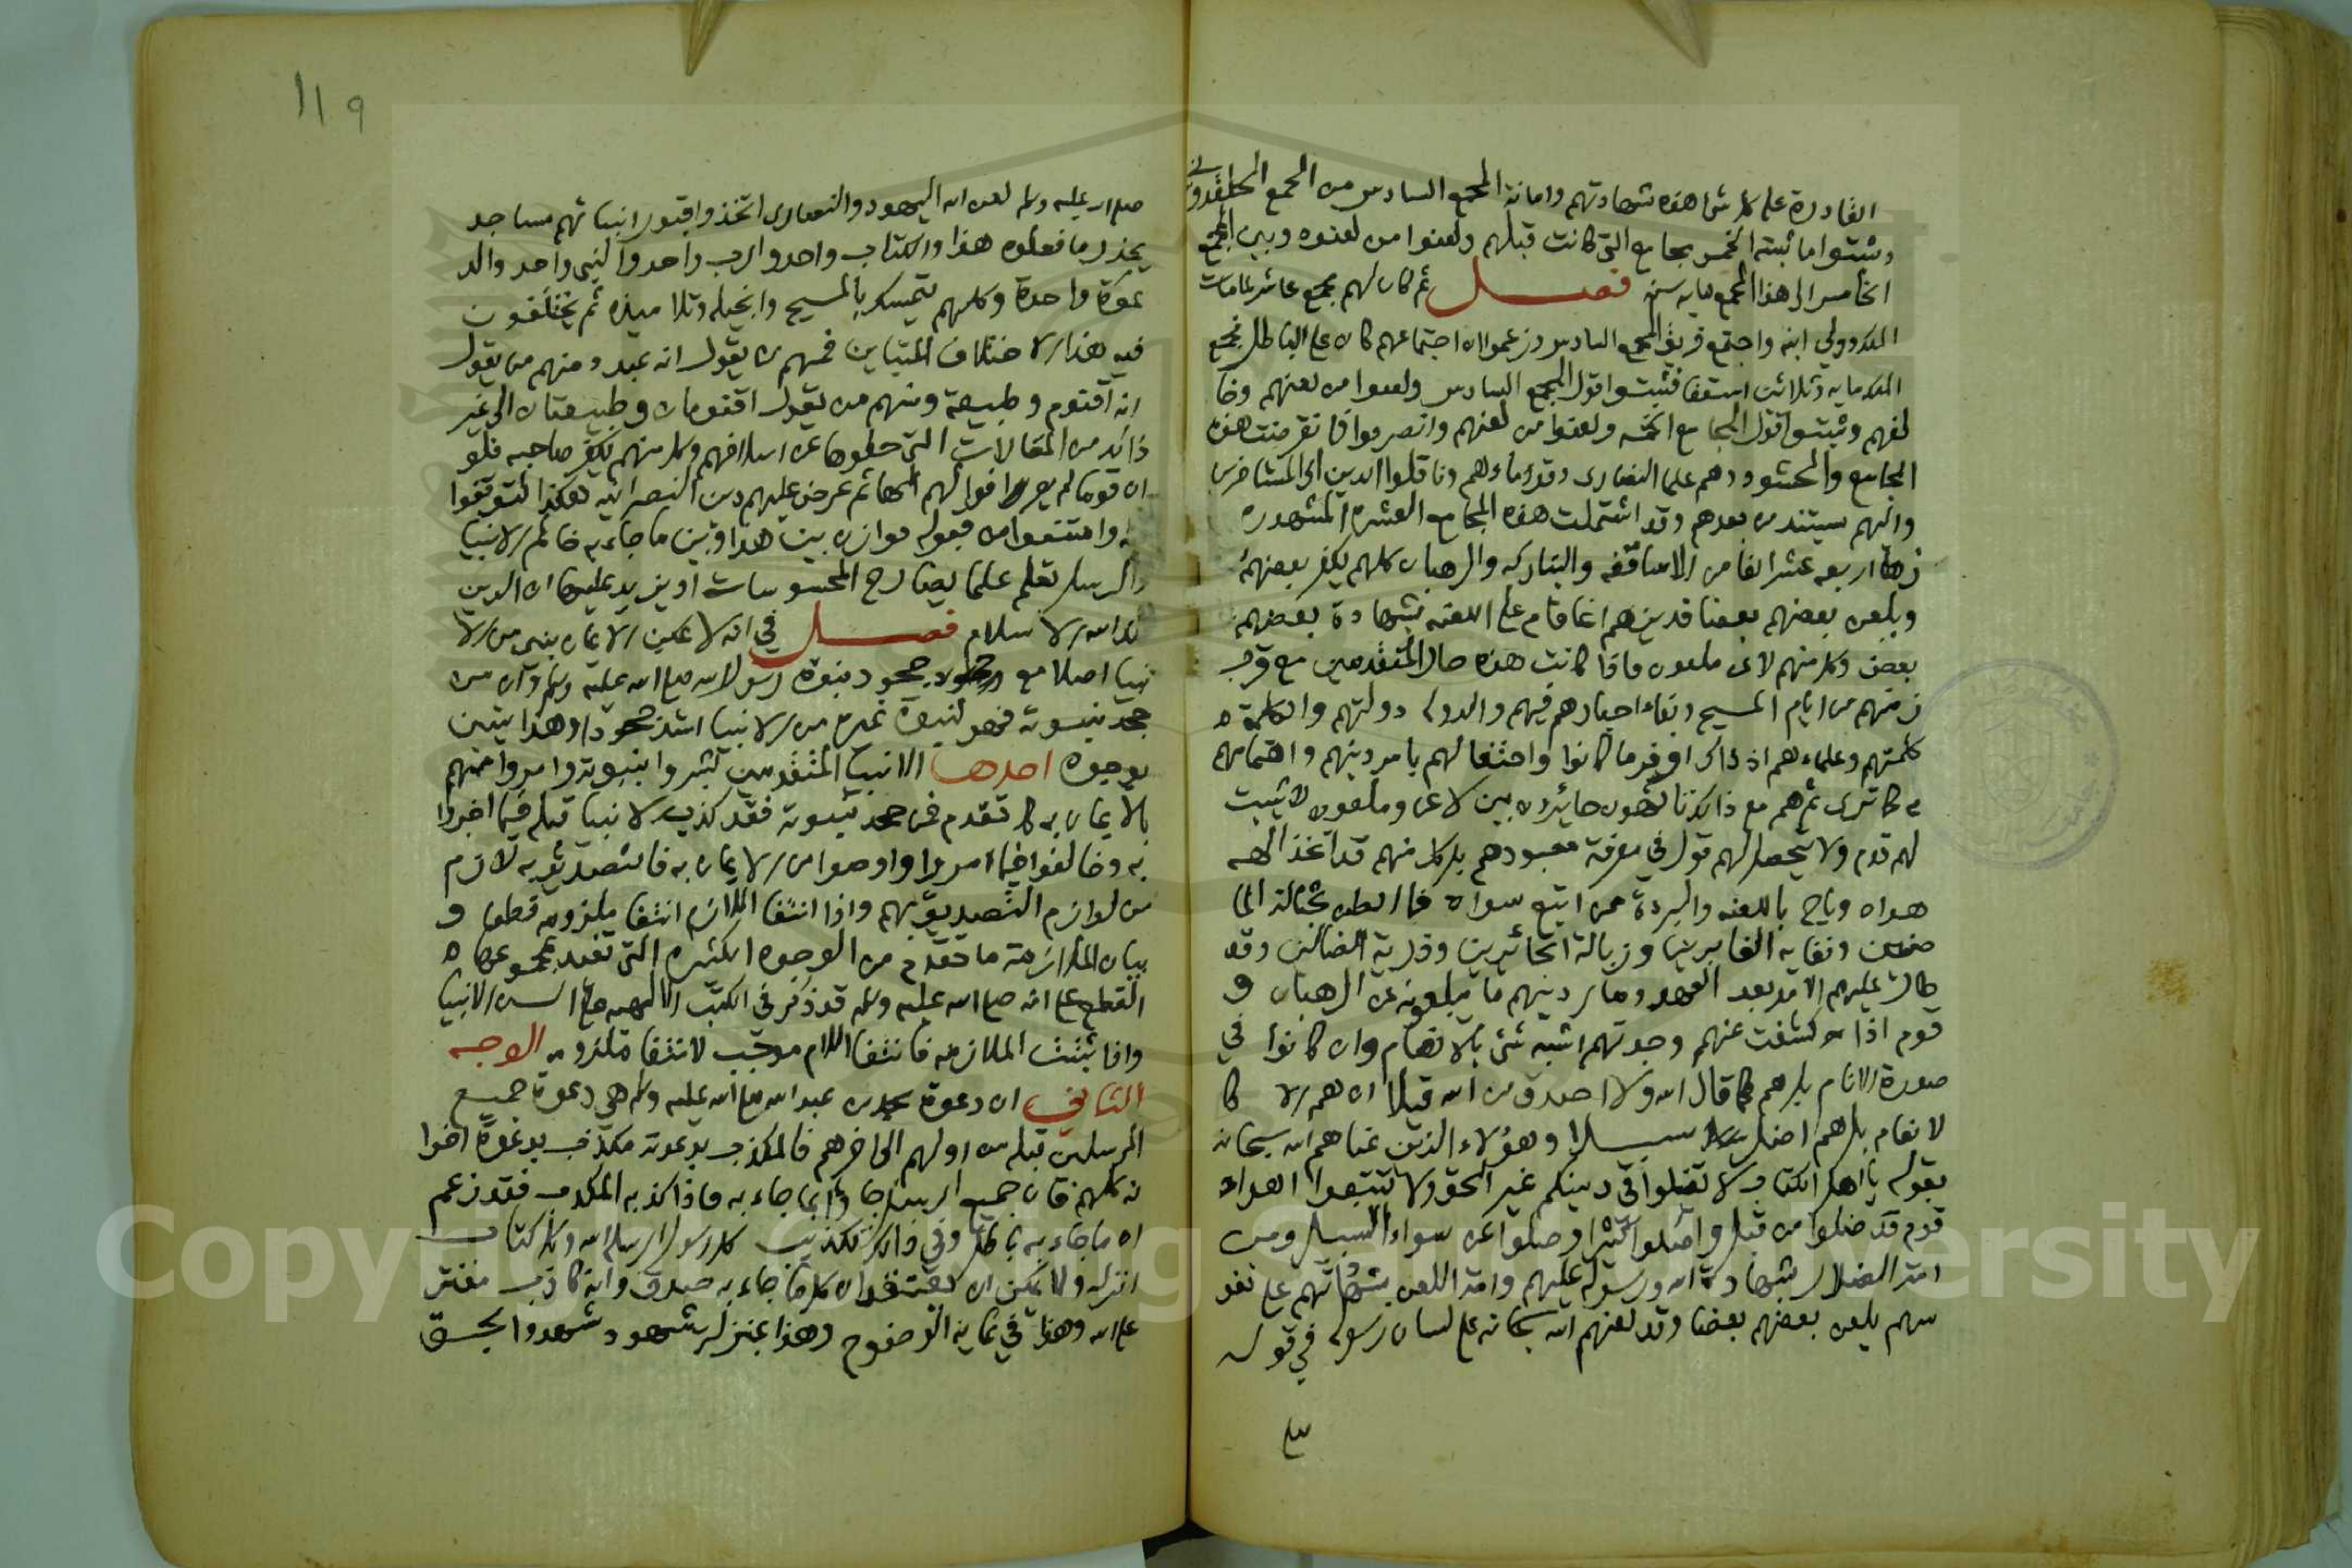 القادرة على كل شي هذه شهادتهم وامانة المجمع السادس من المجمع الخلقدوني
وثبتوا ما ثبته الخمس مجامع التي كانت قبلهم ولعنوا من لعنوه وبين المجمع
الخامس الى هذا المجمع مايه سنه فصل ثم كان لهم مجمع عاشر لما مات
الملك وولي ابنه واجتمع فريق المجمع السادس وزعموا ان اجتماعهم كان على الباطل فجمع
الملك مايه وثلاثين اسقفا فثبتوا قول المجمع السادس ولعنوا من لعنهم وخا
لفهم وثبتوا قول المجامع الخمسه ولعنوا من لعنهم وانصرفوا فانقرضت هذه
المجامع والحشود وهم علما النصارى وقدماءهم وناقلوا الدين الى المتأخرين
واليهم يستند من بعدهم وقد اشتملت هذه المجامع العشره المشهوره
زها اربعه عشر الفا من الاساقفه والبتاركه والرهبان كلهم يكفر بعضهم
ويلعن بعضهم بعضا فدينهم انما قام على اللعنه بشهادة بعضهم على
بعض وكل منهم لاعن ملعون فاذا كانت هذه حال المتقدمين مع قرب
زمنهم من ايام المسيح وبقاء احبارهم فيهم والدوله دولتهم والكلمة
كلمتهم وعلماءهم اذ ذاك اوفر ما كانوا واحتفالهم بامر دينهم واهتمامهم
به كما ترى ثم هم مع ذلك تائهون حائرون بين لاعن وملعون لا يثبت
لهم قدم ولا يتحصل لهم قول في معرفة معبودهم بل كل منهم قد اتخذ الهه
هواه وباح باللعنه والبرءة ممن اتبع سواه فما الظن بحثالة الما
ضين ونفايه الغابرين وزبالة الحائرين وذرية الضالين وقد
طال عليهم الامد بعد العهد وصار دينهم ما يتلقونه عن الرهبان و
قوم اذا كشفت عنهم وجدتهم اشبه شئ بالانعام وان كانوا في
صورة الانام بل هم كما قال الله ولا اصدق من الله قيلا ان هم الا كا
لانعام بل هم اضل سبيلا وهؤلاء الذين عناهم الله سبحانه
بقوله يا اهل الكتاب لا تغلوا في دينكم غير الحق ولا تتبعوا اهواء
قوم قد ضلوا من قبل واضلوا كثيرا وضلوا عن سواء السبيل ومن
امة الضلال بشهادة الله ورسوله عليهم وامة اللعن بشهادتهم على نفو
سهم بلعن بعضهم بعضا وقد لعنهم الله سبحانه على لسان رسوله في قوله
١١٩
صلى الله عليه وسلم لعن الله اليهود والنصارى اتخذوا قبور انبيائهم مساجد
يحذر ما فعلوه هذا والكتاب واحد والرب واحد والنبي واحد والد
عوة واحدة وكلهم يتمسك بالمسيح وانجيله وتلاميذه ثم يختلفون
فيه هذا الاختلاف المتباين فمنهم من يقول انه عبد ومنهم من يقول
انه اقنوم وطبيعة ومنهم من يقول اقنومان وطبيعتان الى غير
ذلك من المقالات التي حكوها عن اسلافهم وكل منهم يكفر صاحبه فلو
ان قوما لم يعرفوا لهم الها ثم عرض عليهم دين النصرانيه هكذا لتوقفوا
عنه وامتنعوا من قبوله فوازن بين هذا وبين ما جاء به خاتم الانبيا
والرسل تعلم علما يضارع المحسوسات او يزيد عليها ان الدين
عند الله الاسلام فصل في انه لا يمكن الايمان بنبي من الا
نبيا اصلا مع جحود نبوة رسول الله صلى الله عليه وسلم وان من
جحد نبوته فهو لنبوة غيره من الانبيا اشد جحودا وهذا يتبين
بوجوه احدها الانبيا المتقدمين بشروا بنبوته وامروا اممهم
بالايمان به كما تقدم فمن جحد نبوته فقد كذب الانبيا قبله فيما اخبروا
به وخالفوا فيما امروا واوصوا من الايمان به فالتصديق به لازم
من لوازم التصديق بهم واذا انتفا اللازم انتفا ملزومه قطعا و
بيان الملازمة ما تقدم من الوجوه الكثيره التي تفيد بمجموعها
القطع على انه صلى الله عليه وسلم قد ذكر في الكتب الالهيه على السن الانبيا
واذا ثبتت الملازمه فانتفا اللازم موجب لانتفا ملزومه الوجه
الثاني ان دعوة محمد بن عبد الله صلى الله عليه وسلم هي دعوة جميع
المرسلين قبله من اولهم الى اخرهم فالمكذب بدعوته مكذب بدعوة اخوا
نه كلهم فان جميع الرسل جاؤا بما جاء به فاذا كذبه المكذب فقد زعم
ان ما جاء به باطل وفي ذلك تكذيب كل رسول ارسله الله وكل كتاب
انزله ولا يمكن ان يعتقد ان كل ما جاء به صدق وانه كاذب مفتر
على الله وهذا في غاية الوضوح وهذا بمنزلة شهود شهدوا بحق
Copyright © King Saud University